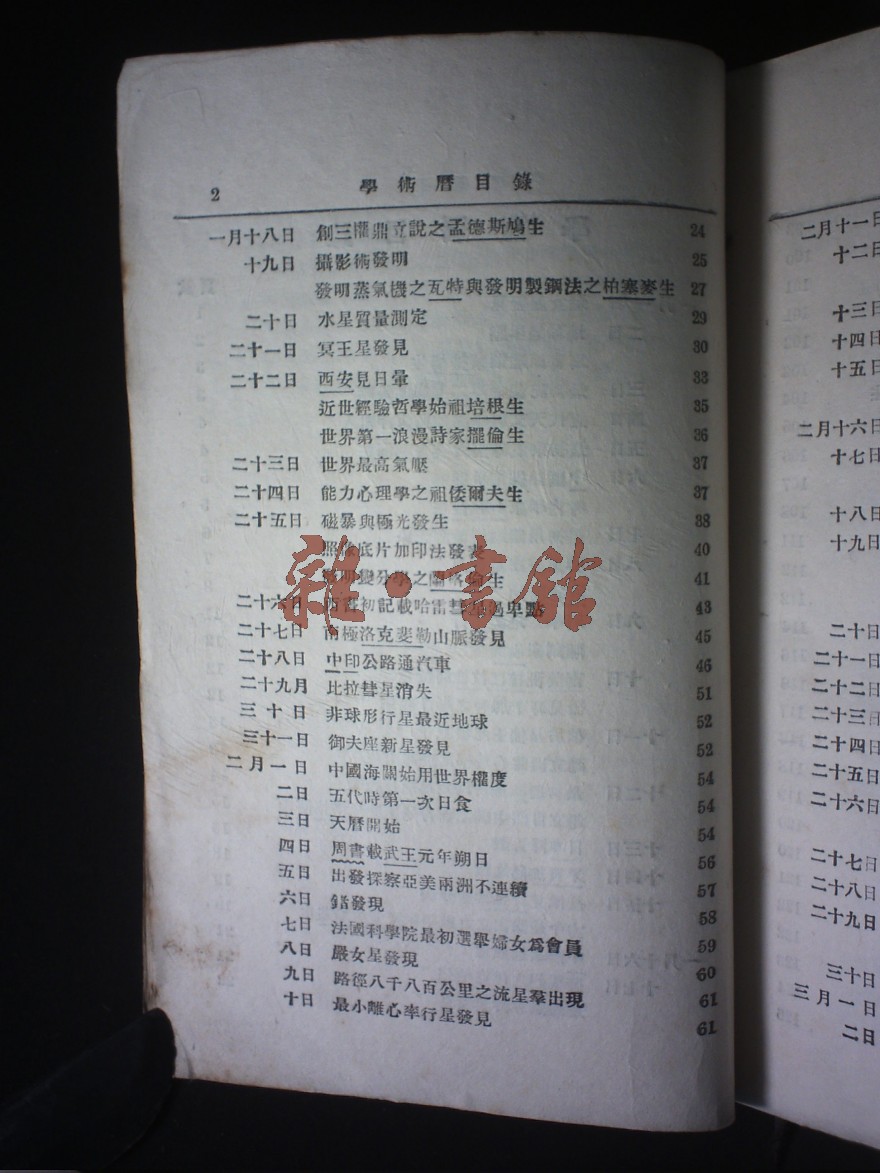 2 學術曆目錄
一月十八日 創三權鼎立說之孟德斯鳩生 24
十九日 攝影術發明 25
發明蒸氣機之瓦特與發明製鋼法之柏塞麥生 27
二十日 水星質量測定 29
二十一日 冥王星發見 30
二十二日 西安見日暈 33
近世經驗哲學始祖培根生 35
世界第一浪漫詩家擺倫生 36
二十三日 世界最高氣壓 37
二十四日 能力心理學之祖倭爾夫生 37
二十五日 磁暴與極光發生 38
照像底片加印法發表 40
發明變分學之蘭格倫生 41
二十六日 西書初記載哈雷彗星過卑點 43
二十七日 南極洛克斐勒山脈發見 45
二十八日 中印公路通汽車 46
二十九月 比拉彗星消失 51
三十日 非球形行星最近地球 52
三十一日 御夫座新星發見 52
二月一日 中國海關始用世界權度 54
二日 五代時第一次日食 54
三日 天曆開始 54
四日 周書載武王元年朔日 56
五日 出發探察亞美兩洲不連續 57
六日 錯發現 58
七日 法國科學院最初選舉婦女爲會員 59
八日 嚴女星發現 60
九日 路徑八千八百公里之流星羣出現 61
十日 最小離心率行星發見 61
雜·書館
二月十一日
十二日
十三日
十四日
十五日
二月十六日
十七日
十八日
十九日
二十日
二十一日
二十二日
二十三日
二十四日
二十五日
二十六日
二十七日
二十八日
二十九日
三十日
三月一日
二日